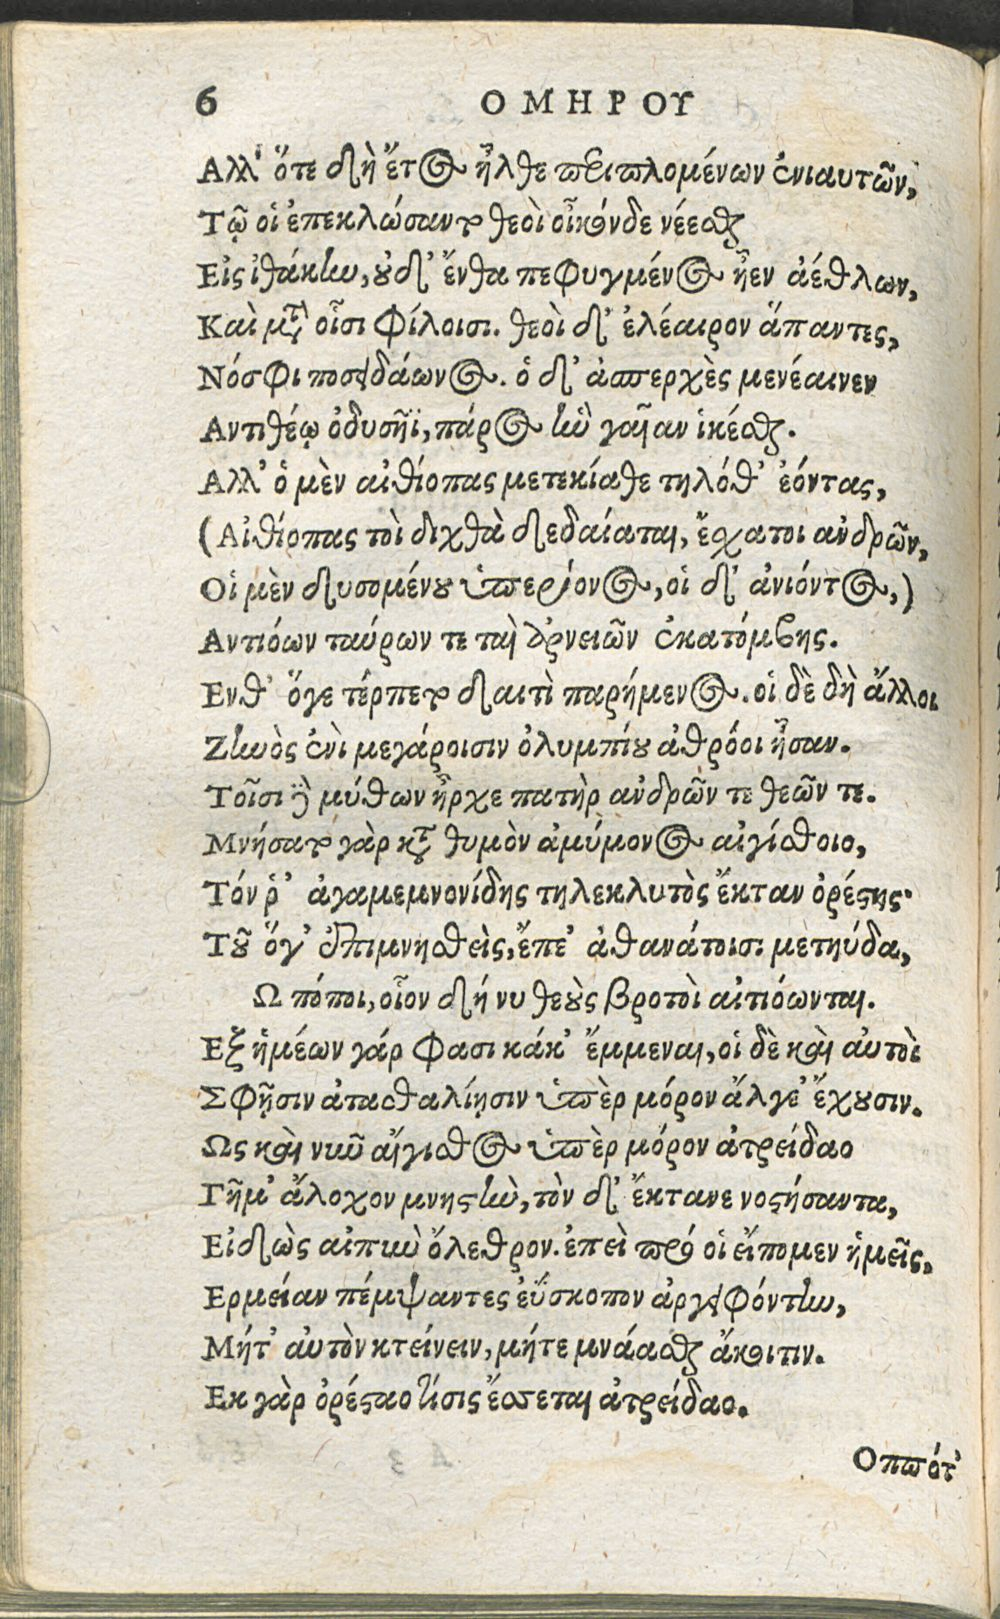 6 ΟΜΗΡΟΥ
Αλλ' ὅτε δὴ ἔτος ἦλθε περιπλομένων ἐνιαυτῶν,
Τῷ οἱ ἐπεκλώσαντο θεοὶ οἶκόνδε νέεσθαι
Εἰς ἰθάκην, οὐδ' ἔνθα πεφυγμένος ἦεν ἀέθλων,
Καὶ μετὰ οἷσι φίλοισι. θεοὶ δ' ἐλέαιρον ἅπαντες,
Νόσφι ποσειδάωνος. ὁ δ' ἀσπερχὲς μενέαινεν
Αντιθέῳ ὀδυσῆϊ, πάρος ἣν γαῖαν ἱκέσθαι.
Αλλ' ὁ μὲν αἰθίοπας μετεκίαθε τηλόθ' ἐόντας,
(Αἰθίοπας τοὶ διχθὰ δεδαίαται, ἔσχατοι ἀνδρῶν,
Οἱ μὲν δυσομένου ὑπερίονος, οἱ δ' ἀνιόντος,)
Αντιόων ταύρων τε καὶ ἀρνειῶν ἑκατόμβης.
Ενθ' ὅγε τέρπετο δαιτὶ παρήμενος. οἱ δὲ δὴ ἄλλοι
Ζηνὸς ἐνὶ μεγάροισιν ὀλυμπίου ἀθρόοι ἦσαν.
Τοῖσι δὲ μύθων ἦρχε πατὴρ ἀνδρῶν τε θεῶν τε.
Μνήσατο γὰρ κατὰ θυμὸν ἀμύμονος αἰγίσθοιο,
Τόν ῥ' ἀγαμεμνονίδης τηλεκλυτὸς ἔκταν ὀρέστης.
Τοῦ ὅγ' ἐπιμνησθεὶς, ἔπε' ἀθανάτοισι μετηύδα,
Ω πόποι, οἷον δή νυ θεοὺς βροτοὶ αἰτιόωνται.
Εξ ἡμέων γάρ φασι κάκ' ἔμμεναι, οἱ δὲ καὶ αὐτοὶ
Σφῇσιν ἀτασθαλίῃσιν ὑπὲρ μόρον ἄλγε' ἔχουσιν.
Ως καὶ νῦν αἴγισθος ὑπὲρ μόρον ἀτρείδαο
Γῆμ' ἄλοχον μνηστὴν, τὸν δ' ἔκτανε νοστήσαντα,
Εἰδὼς αἰπὺν ὄλεθρον. ἐπεὶ πρό οἱ εἴπομεν ἡμεῖς,
Ερμείαν πέμψαντες ἐΰσκοπον ἀργειφόντην,
Μήτ' αὐτὸν κτείνειν, μήτε μνάασθαι ἄκοιτιν.
Εκ γὰρ ὀρέσταο τίσις ἔσσεται ἀτρείδαο.
Οππότ'